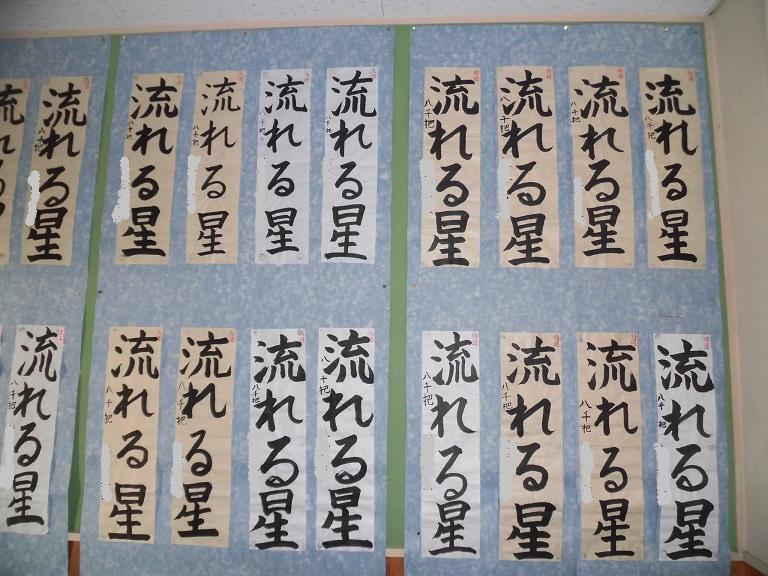 流れる星
八千把
流れる星
八千把
流れる星
八千把
流れる星
八千把
流れる星
八千把
流れる星
八千把
流れる星
八千把
流れる星
八千把
流れる星
八千把
流れる
流れる星
八千把
流れる星
八千把
流れる星
八千把
流れる星
八千把
流れる星
八千把
流れる星
八千把
流れる星
八千把
流れる星
八千把
流れる星
八千把